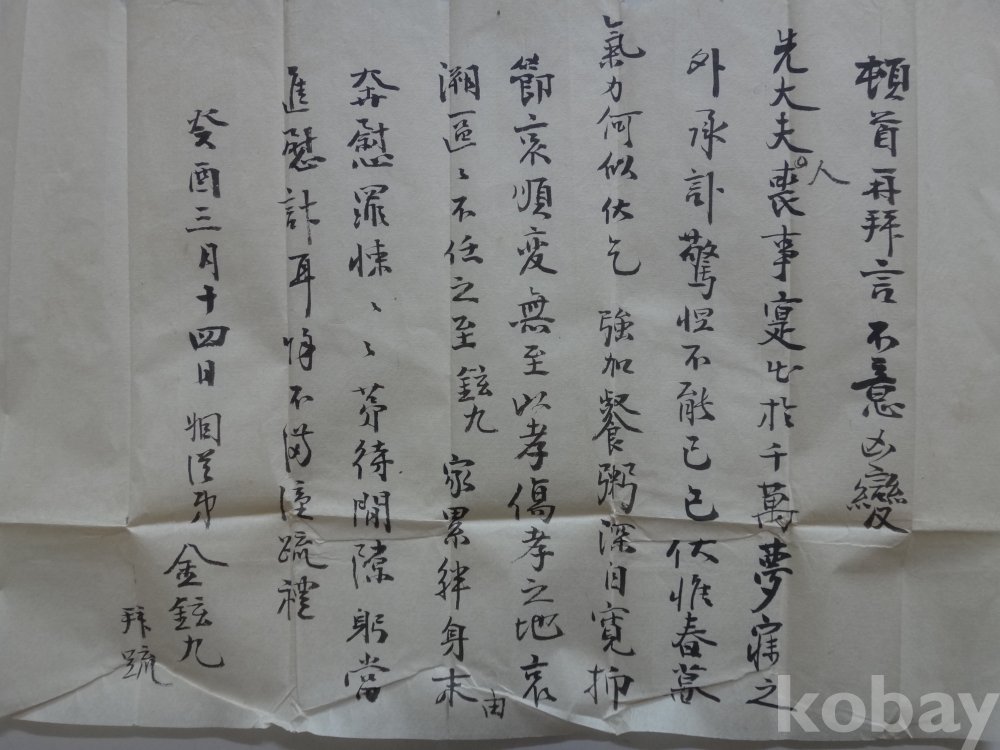 頓首再拜言不意凶變
先大夫人喪事寔出於千萬夢寐之
外承訃驚怛不能已已伏惟春暮
氣力何似伏乞 強加餐粥深自寬抑
節哀順変無至以孝傷孝之地哀
溯區〻不任之至鉉九 家累絆身末由
奔慰罪悚〻〻第待間隙躬當
進慰計耳 不備謹疏禮
癸酉三月十四日 姻從弟 金鉉九
拜疏
kobay